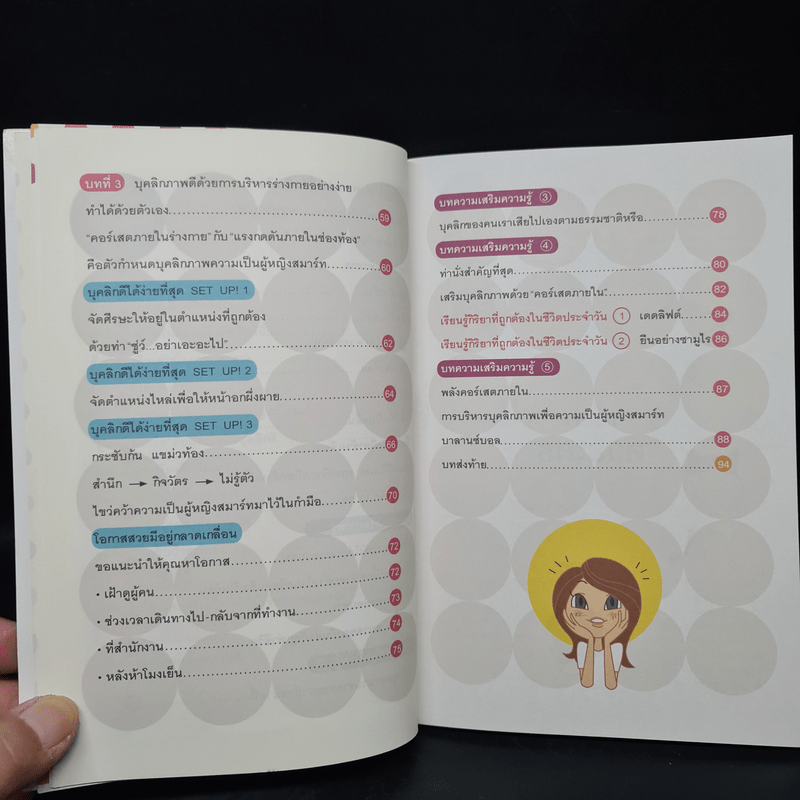 บทที่ 3 บุคลิกภาพดีด้วยการบริหารร่างกายอย่างง่าย
ทำได้ด้วยตัวเอง 59
"คอร์เสตภายในร่างกาย" กับ "แรงกดดันภายในช่องท้อง"
คือตัวกำหนดบุคลิกภาพความเป็นผู้หญิงสมาร์ท 60
บุคลิกดีได้ง่ายที่สุด SET UP! 1
จัดศีรษะให้อยู่ในตำแหน่งที่ถูกต้อง
ด้วยท่า "ชู่ว์...อย่าเอะอะไป" 62
บุคลิกดีได้ง่ายที่สุด SET UP! 2
จัดตำแหน่งไหล่เพื่อให้หน้าอกผึ่งผาย 64
บุคลิกดีได้ง่ายที่สุด SET UP! 3
กระชับก้น แขม่วท้อง 66
สำนึก → กิจวัตร → ไม่รู้ตัว
ไขว่คว้าความเป็นผู้หญิงสมาร์ทมาไว้ในกำมือ 70
โอกาสสวยมีอยู่กลาดเกลื่อน
ขอแนะนำให้คุณหาโอกาส 72
• เฝ้าดูผู้คน 72
• ช่วงเวลาเดินทางไป-กลับจากที่ทำงาน 73
• ที่สำนักงาน 74
• หลังห้าโมงเย็น 75
บทความเสริมความรู้ 3
บุคลิกของคนเราเสียไปเองตามธรรมชาติหรือ 78
บทความเสริมความรู้ 4
ท่านั่งสำคัญที่สุด 80
เสริมบุคลิกภาพด้วย "คอร์เสตภายใน" 82
เรียนรู้กิริยาที่ถูกต้องในชีวิตประจำวัน 1 เดดลิฟต์ 84
เรียนรู้กิริยาที่ถูกต้องในชีวิตประจำวัน 2 ยืนอย่างซามูไร 86
บทความเสริมความรู้ 5
พลังคอร์เสตภายใน 87
การบริหารบุคลิกภาพเพื่อความเป็นผู้หญิงสมาร์ท
บาลานซ์บอล 88
บทส่งท้าย 94